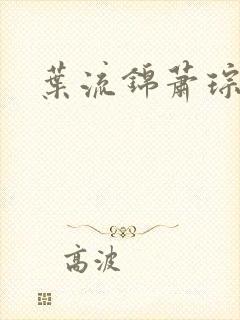 葉流錦蕭琮
高波